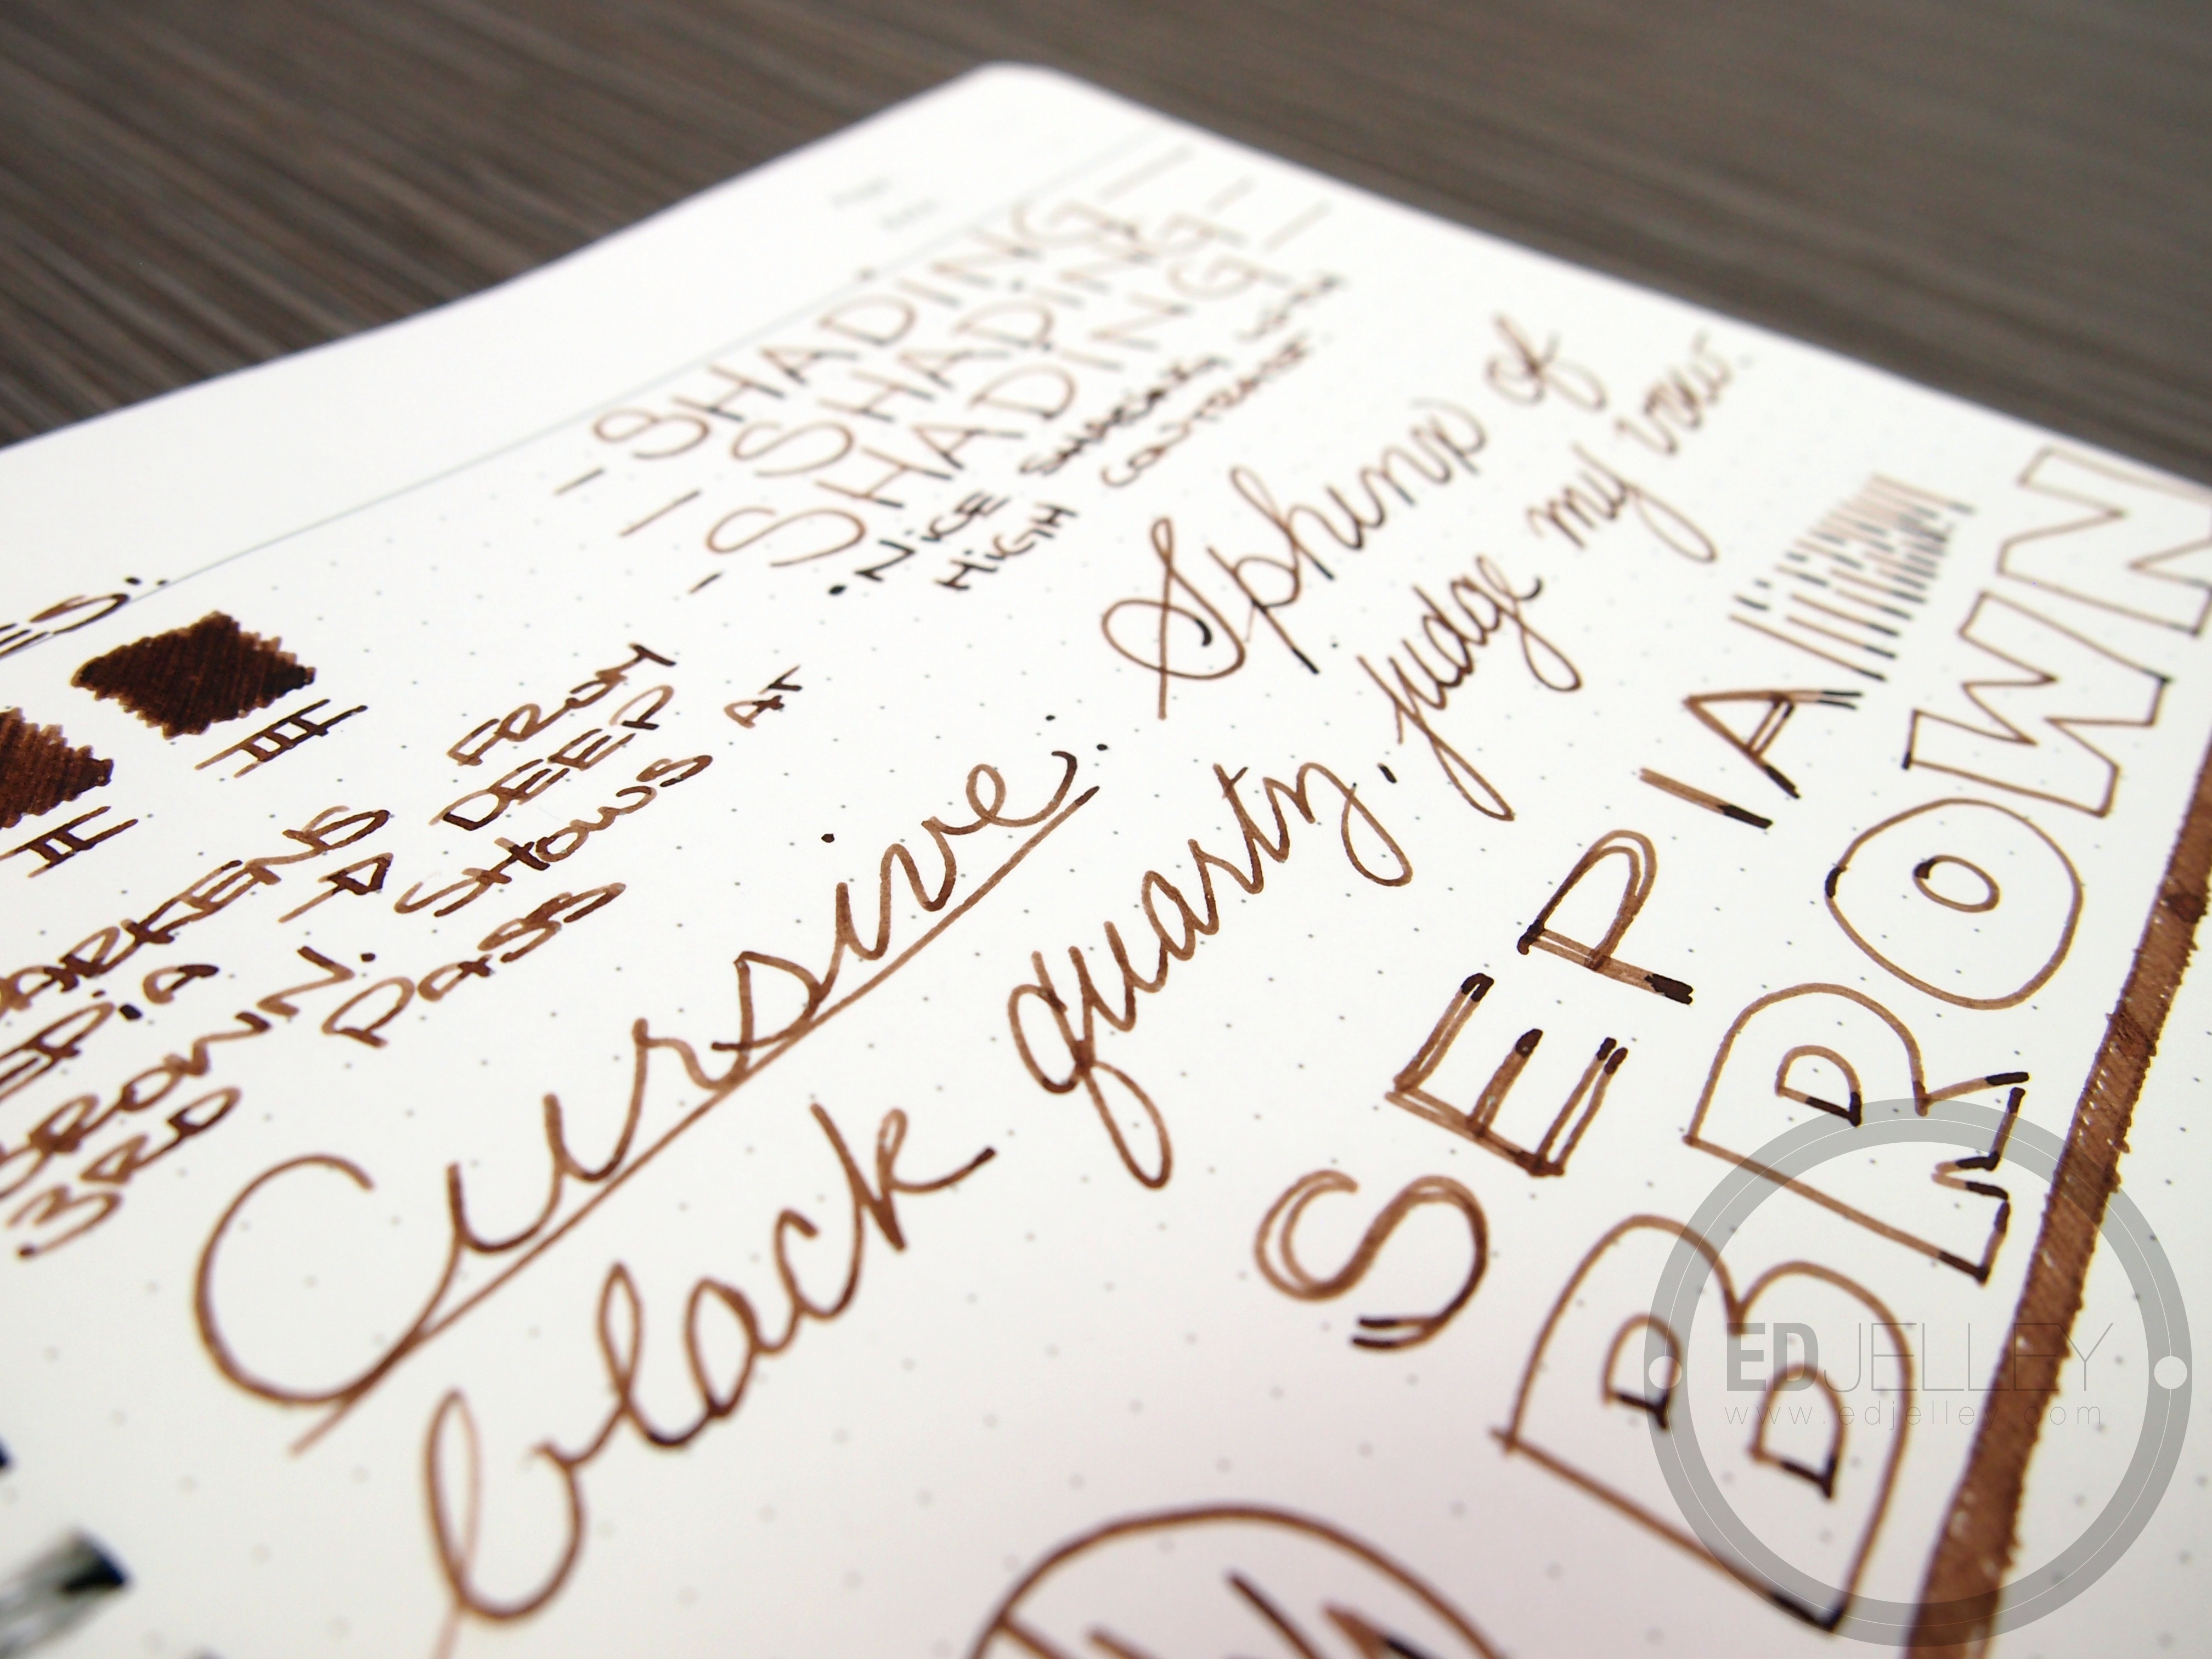 - SHADING -
- SHADING -
- SHADING -
• NiCE SHADING WITH
HiGH CONTRAST.
III
II
FROM
DEEP
BROWN. Shows AT
3RD Pass
Cursive: Sphinx of
black quartz, judge my vow.
SEPIA
BROWN
EDJELLEY
www.edjelley.com